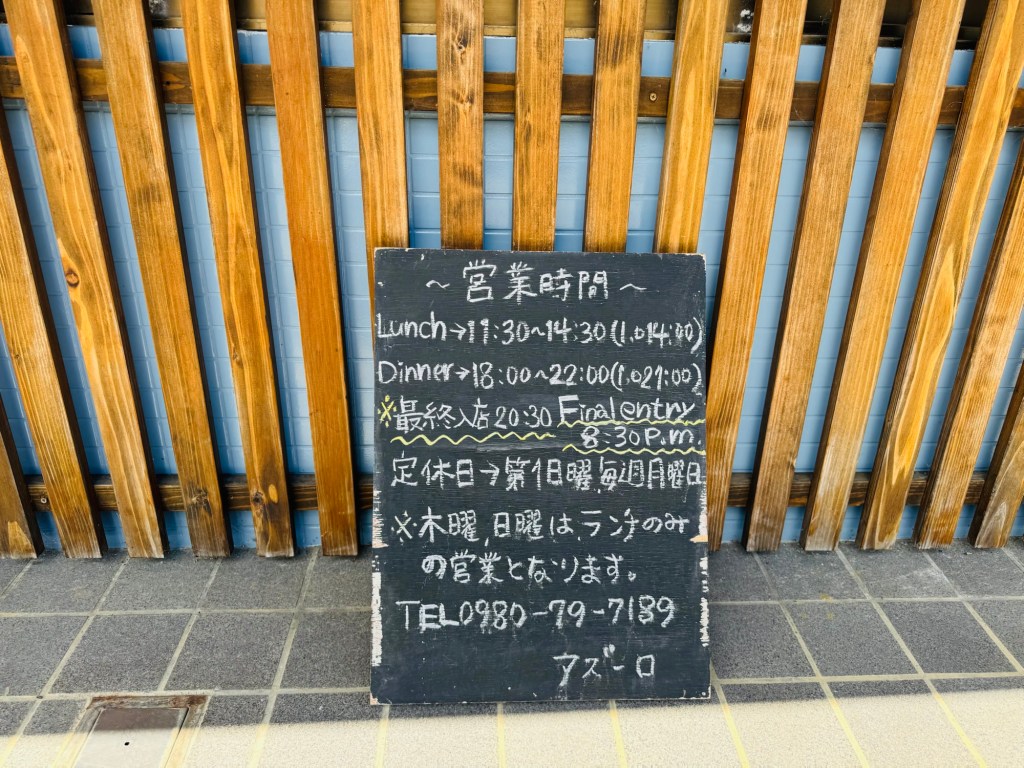 ～営業時間～
Lunch→11:30~14:30(l,o14:00)
Dinner→18:00~22:00(l,o21:00)
※最終入店20:30 Final entry
8:30P.m.
定休日→第1日曜,毎週月曜日
※木曜,日曜は,ランチのみ
の営業となります。
TEL0980-79-7189
アズーロ